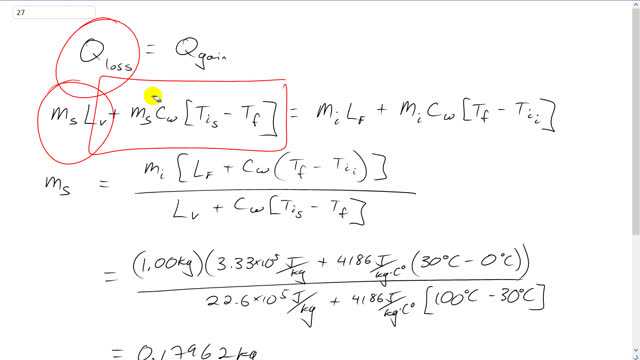 27
Q_loss = Q_gain
m_s L_v + m_s C_w [T_is − T_f] = m_i L_F + m_i C_w [T_f − T_ii]
m_s = m_i [L_F + C_w (T_f − T_ii)] / L_v + C_w [T_is − T_f]
= (1.00kg)(3.33×10⁵ J/kg + 4186 J/kg·C° (30°C − 0°C)) / 22.6×10⁵ J/kg + 4186 J/kg·C° [100°C − 30°C]
= 0.17962kg